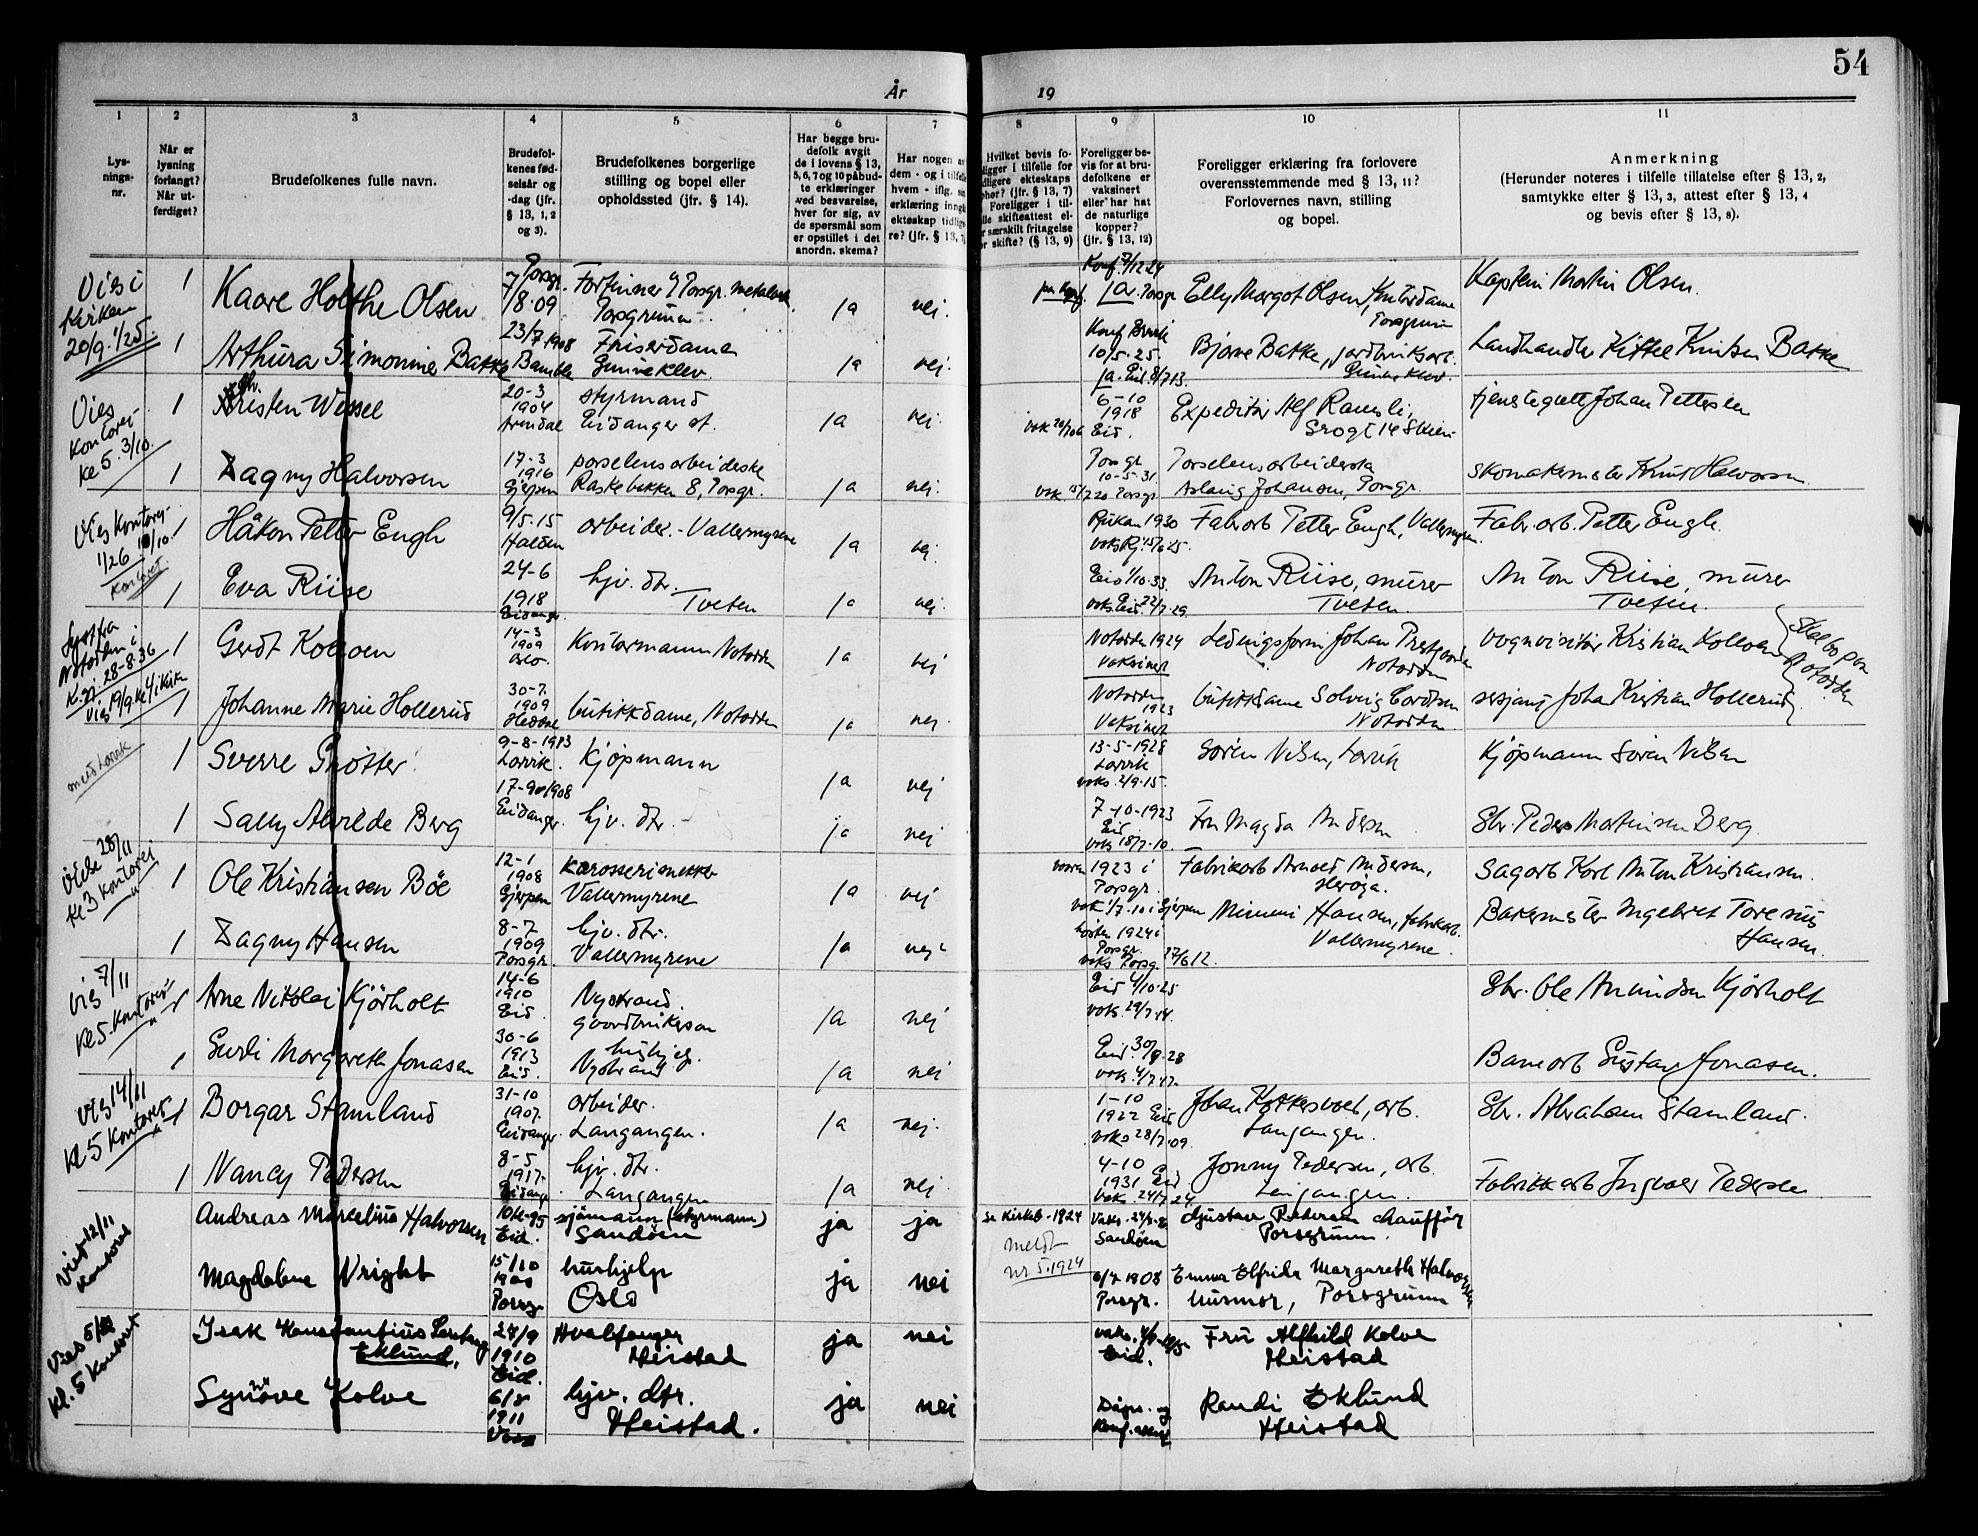 54
År
19
1
2
3
4
5
6
7
8
9
10
11
Lys-
nings-
nr.
Når er
lysning
forlangt?
Når ut-
ferdiget?
Brudefolkenes fulle navn.
Brudefol-
kenes fød-
selsår og
-dag (jfr.
§ 13, 1, 2
og 3).
Brudefolkenes borgerlige
stilling og bopel eller
opholdssted (jfr. § 14).
Har begge bru-
defolk avgit
de i lovens § 13,
5, 6, 7 og 10 påbud-
te erklæringer
ved besvarelse,
hver for sig, av
de spørsmål som
er opstillet i det
anordn. skema?
Har nogen av
dem - og i tilfelle
hvem - iflg. sin
erklæring inngå
ekteskap tidlig
re? (jfr. § 13,
Hvilket bevis fo-
ligger i tilfelle for
dligere ekteskaps
phør? (jfr. § 13, 7)
Foreligger i til-
lle skifteattest el-
r særskilt fritagelse
or skifte? (§ 13, 9)
Foreligger be-
vis for at bru-
defolkene er
vaksinert
eller har hat
de naturlige
kopper?
(jfr. § 13, 12)
Foreligger erklæring fra forlovere
overensstemmende med § 13, 11?
Forlovernes navn, stilling
og bopel.
Anmerkning
(Herunder noteres i tilfelle tillatelse efter § 13, 2,
samtykke efter § 13, 3, attest efter § 13, 4
og bevis efter § 13, 8).
Vies i
Kirken
20/9. 1/25.
1
Kaare Holthe Olsen
Porsgr.
7/8-09
Porsgr. metalverk
Porsgrunn
ja
nei.
Konf 7/12 24
ja. Porsgr
Elly Margot Olsen, Kontordame
Porsgrunn
Kaptein Martin Olsen.
1
Arthura Simonine Bakke
23/7 1908
Bamble
Friserdame
Gunneklev.
ja
nei.
10/5-25.
ja. Eid. 8/7 13.
Bjarne Bakke, jordbruksarb.
Gunneklev.
Landhandler Kittel Knutsen Bakke
Vies
Kontoret
kl 5. 3/10.
1
Kristen Wessel
20-3
1904
Arendal
styrmand
Eidanger st.
ja
nei.
6-10
1918
Eid.
Expeditør Alf Ramsli,
Skien
Johan Pettersen
1
Dagny Halvorsen
17-3
1916
Gjerpen
porselensarbeiderske
Raskebakken 8, Porsgr.
ja
nei.
Porsgr
10-5-31.
Porselensarbeiderske
Aslaug Johansen, Porsgr.
Skomakermester Knut Halvorsen
Vies Kontoret
1/26 10/10.
Kontoret.
1
Håkon Petter Engh
9/5-15
Halden
arbeider.- Vallermyrene
ja
nei
Rjukan 1930
Fabr.arb Petter Engh, Vallermyren.
Fabr.arb. Petter Engh.
1
Eva Riise
24-6
1918
Eidanger
hjv. dtr.
Tveten
ja
nei.
Eid 1/10.33.
voks. Eid. 22/7.29.
Anton Riise, murer
Tveten.
Anton Riise, murer
Tveten.
Lyst fra
Notodden i
28-8-36
Vies 19/9. kl 4 i Kirken
1
Gerdt Kolloen
14-3
1909
Oslo.
Kontormann Notodden
ja
nei
Notodden 1924
Vaksinert
Johan Prestgarden
Notodden
Vognvisitør Kristian Kolloen
Skal bo paa
Notodden
1
Johanne Marie Hollerud
30-7.
1909
Heddal
butikkdame, Notodden
ja
nei
Notodden
1923
Vaksinert
butikkdame Solveig
Notodden.
Johan Kristian Hollerud
meld Larvik
1
Sverre Grøtter
9-8-1913
Larvik.
Kjøpmann
ja
nei
13-5-1928
Larvik
voks. 2/9-15.
Søren Nilsen, Larvik
Kjøpmann Søren Nilsen
1
Sally Alvilde Berg
17-9 1908
Eidanger.
hjv. dtr.
ja
nei
7-10-1923
Eid
voks 18/7-10.
Fru Magda Andersen
Gbr. Peder Martinsen Berg.
Viede 28/11
kl 3 Kontoret
1
Ole Kristiansen Böe
12-1
1908
Gjerpen
Karosserisnekker
Vallermyrene
ja
nei
1923 i
Porsgr.
vok 1/7-10 i Gjerpen
Fabrikarb Arnold Andersen,
Herøya.
Sagarb Karl Anton Kristiansen.
1
Dagny Hansen
8-7
1909
Porsgr.
hjv. dtr.
Vallermyrene
ja
nei
høsten 1924 i
Porsgr.
voks Porsg. 27/6 12.
Mimmi Hansen, fabrikarb.
Vallermyrene.
Bakermester Ingebret Torenius
Hansen.
Vies 7/11
kl 5. Kontoret
1
Arne Nikolai Kjörholt
14-6
1910
Eid.
Nystrand.
gaardbruker
ja
nei
Eid 4/10-25
voks. 29/7.14.
Gbr. Ole Amundsen Kjörholt
1
Gurli Margareth Jonasen
30-6
1913
Eid.
hushjelp.
Nystrand
ja
nei
voks. 4/7.17.
Banearb Gustav Jonasen.
Vies 14/11
kl 5 Kontoret
1
Borgar Stamland
31-10
1907.
Eidanger.
arbeider.
Langangen.
ja
nei.
1-10
1922 Eid
voks 28/7.09.
Johan Kokkesvold, arb.
Langangen.
Gbr. Abraham Stamland.
1
Nancy Pedersen
8-5
1917.
Eidanger.
hjv. dtr.
Langangen
ja
nei.
4-10
1931 Eid
voks. 24/7 24.
Jonny Pedersen, arb.
Langangen.
Fabrikkarb Ingvald Pedersen
Viet 12/11
Kontoret
Andreas Marcelius Halvorsen
Eid.
sjömann (styrmann)
Sandöen
ja
ja
se Kirkeb. 1924
meldt
nr 5. 1924
Sandöen
Gustav Pedersen chauffør
Porsgrunn.
Magdalene Wright
15/10
1900
Porsgr
hushjelp
Oslo
ja
nei
6/7 1908
Porsgr.
Emma Elfrida Margareth Halvorsen
husmor, Porsgrunn
Vies
kl. 5 Kontoret
Isak Konstantius
Eklund,
24/9
1910
Eid.
Hvalfanger
Heistad
ja
nei
Eid.
Fru Alfhild Kolve
Heistad
Synöve Kolve
6/8
1911
Voss
hjv. dtr.
Heistad.
ja
nei
Dåps. og
Konf. attest
Randi Eklund
Heistad